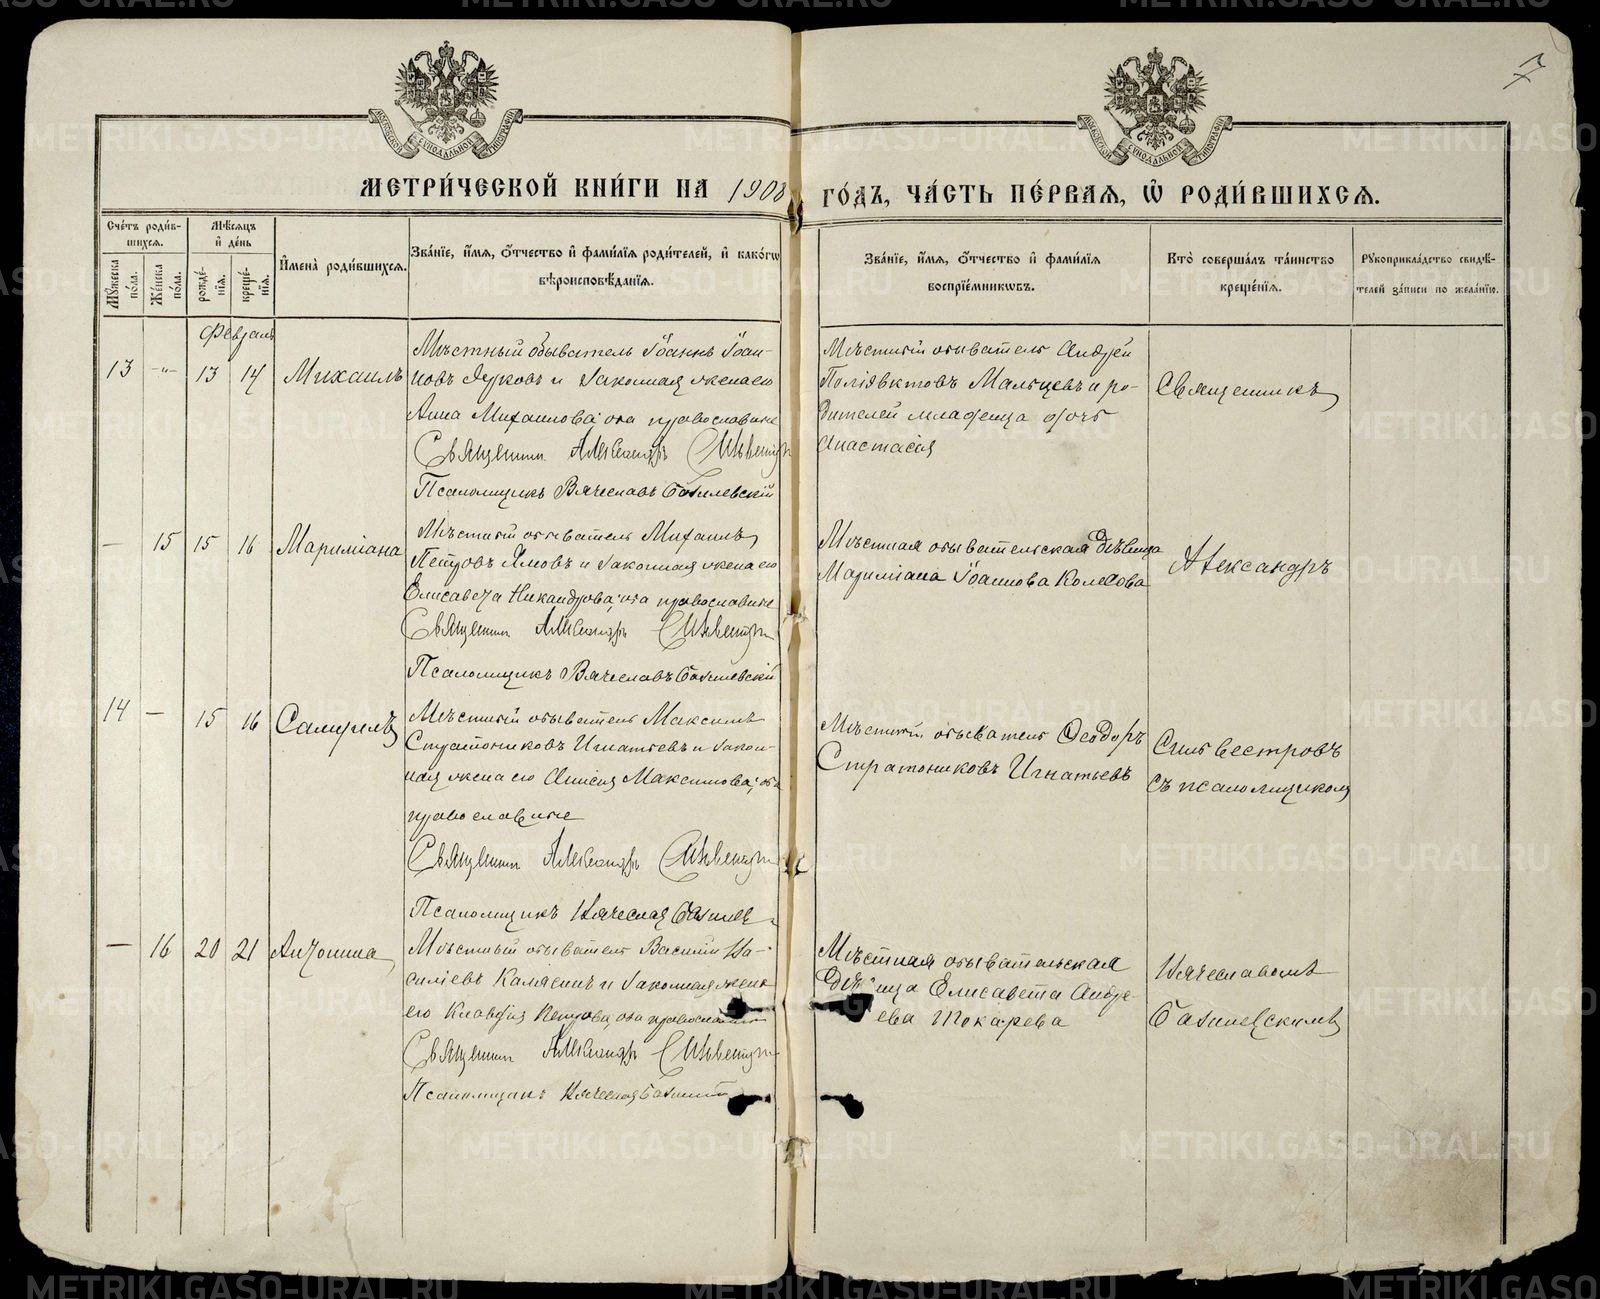 7
МОСКОВСКОЙ СУНОДАЛЬНОЙ ТИПОГРАФИИ
МОСКОВСКОЙ СУНОДАЛЬНОЙ ТИПОГРАФИИ
МЕТРИ́ЧЕСКОЙ КНИ́ГИ НА 1908 ГО́ДЪ, ЧА́СТЬ ПЕ́РВАЯ, Ѡ҆ РОДИ́ВШИХСѦ.
Сче́тъ роди́в-
шихсѧ.
Мѹ́жеска по́ла.
Же́нска по́ла.
Мѣ́сѧцъ
и҆ де́нь
рожде́-
нїѧ.
креще́-
нїѧ.
И҆мена̀ роди́вшихсѧ.
Зва́нїе, и҆́мѧ, ѻ҆́тчество и҆ фами́лїѧ роди́телей, и҆ како́гѡ
вѣроисповѣ́данїѧ.
Зва́нїе, и҆́мѧ, ѻ҆́тчество и҆ фами́лїѧ
воспрїе́мникѡвъ.
Кто̀ соверша́лъ та́инство
креще́нїѧ.
Рꙋкоприкла́дство свидѣ́-
телей за́писи по жела́нїю.
Февраля
13 -"- 13 14 Михаилъ
Мѣстный обыватель Іоаннъ Іоан-
новъ и законная жена его
Анна Михаилова; оба православные
Священникъ Александръ Сильвестровъ
Псаломщикъ Вячеславъ
Мѣстный обыватель Андрей
Поліевктовъ Мальцевъ и ро-
дителей младенца дочь
Анастасія
Священникъ
— 15 15 16 Мариміана
Мѣстный обыватель Михаилъ
Петровъ и законная жена его
Елисавета Никандрова; оба православные
Священникъ Александръ Сильвестровъ
Псаломщикъ Вячеславъ
Мѣстная обывательская дѣвица
Мариміана Іоаннова Колесова
Александръ
14 — 15 16 Самуилъ
Мѣстный обыватель Максимъ
Стратониковъ Игнатьевъ и закон-
ная жена его Анисія Максимова; оба
православные
Священникъ Александръ Сильвестровъ
Псаломщикъ Вячеславъ
Мѣстный обыватель Ѳеодоръ
Стратониковъ Игнатьевъ
Сильвестровъ
съ псаломщикомъ
— 16 20 21 Антонина
Мѣстный обыватель Василій Ва-
силіевъ и законная жена
его Клавдія Петрова, оба православные
Священникъ Александръ Сильвестровъ
Псаломщикъ Вячеславъ
Мѣстная обывательская
дѣвица Елисавета Андре-
ева Токарева
Вячеславомъ
METRIKI.GASO-URAL.RU